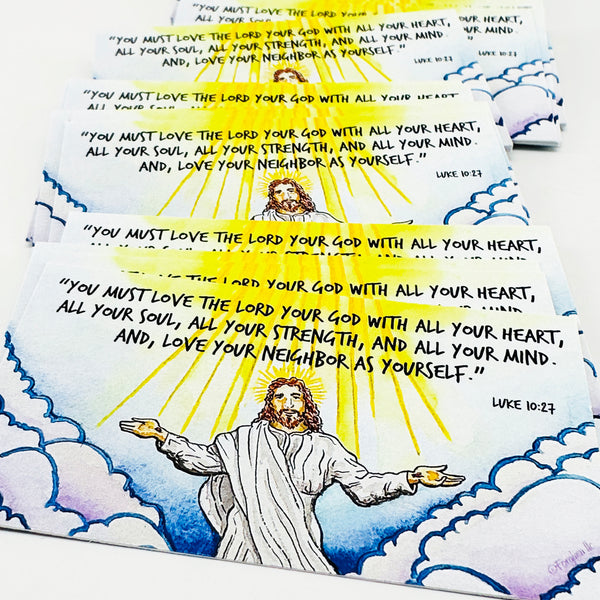 "YOU MUST LOVE THE LORD YOUR
"YOU MUST LOVE THE LORD YOUR GOD WITH ALL YOUR HEART,
ALL YOUR SOUL, ALL YOUR STRENGTH, AND ALL YOUR MIND.
AND, LOVE YOUR NEIGHBOR AS YOURSELF."
LUKE 10:27
"YOU MUST LOVE THE LORD YOUR GOD WITH ALL YOUR HEART,
"YOU MUST LOVE THE LORD YOUR GOD WITH ALL YOUR HEART,
ALL YOUR SOUL, ALL YOUR STRENGTH, AND ALL YOUR MIND.
AND, LOVE YOUR NEIGHBOR AS YOURSELF."
LUKE 10:27
"YOU MUST LOVE THE LORD YOUR GOD WITH ALL YOUR HEART,
"YOU MUST LOVE THE LORD YOUR GOD WITH ALL YOUR HEART,
"YOU MUST LOVE THE LORD YOUR GOD WITH ALL YOUR HEART,
ALL YOUR SOUL, ALL YOUR STRENGTH, AND ALL YOUR MIND.
AND, LOVE YOUR NEIGHBOR AS YOURSELF."
LUKE 10:27